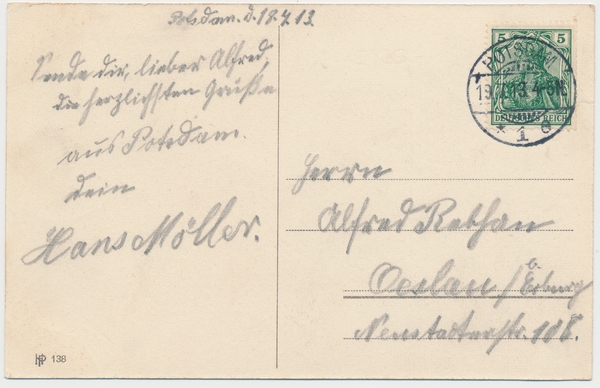 Potsdam. d. 18.7.13.
Sende dir, lieber Alfred,
die herzlichsten Grüße
aus Potsdam.
Dein
Hans Möller.
HP 138
5 5
POTSDAM
19.7.13. 4-5N.
* 1 d
DEUTSCHES REICH
Herrn
Alfred Rebhan
Oeslau / b. Coburg
Neustadterstr. 108.